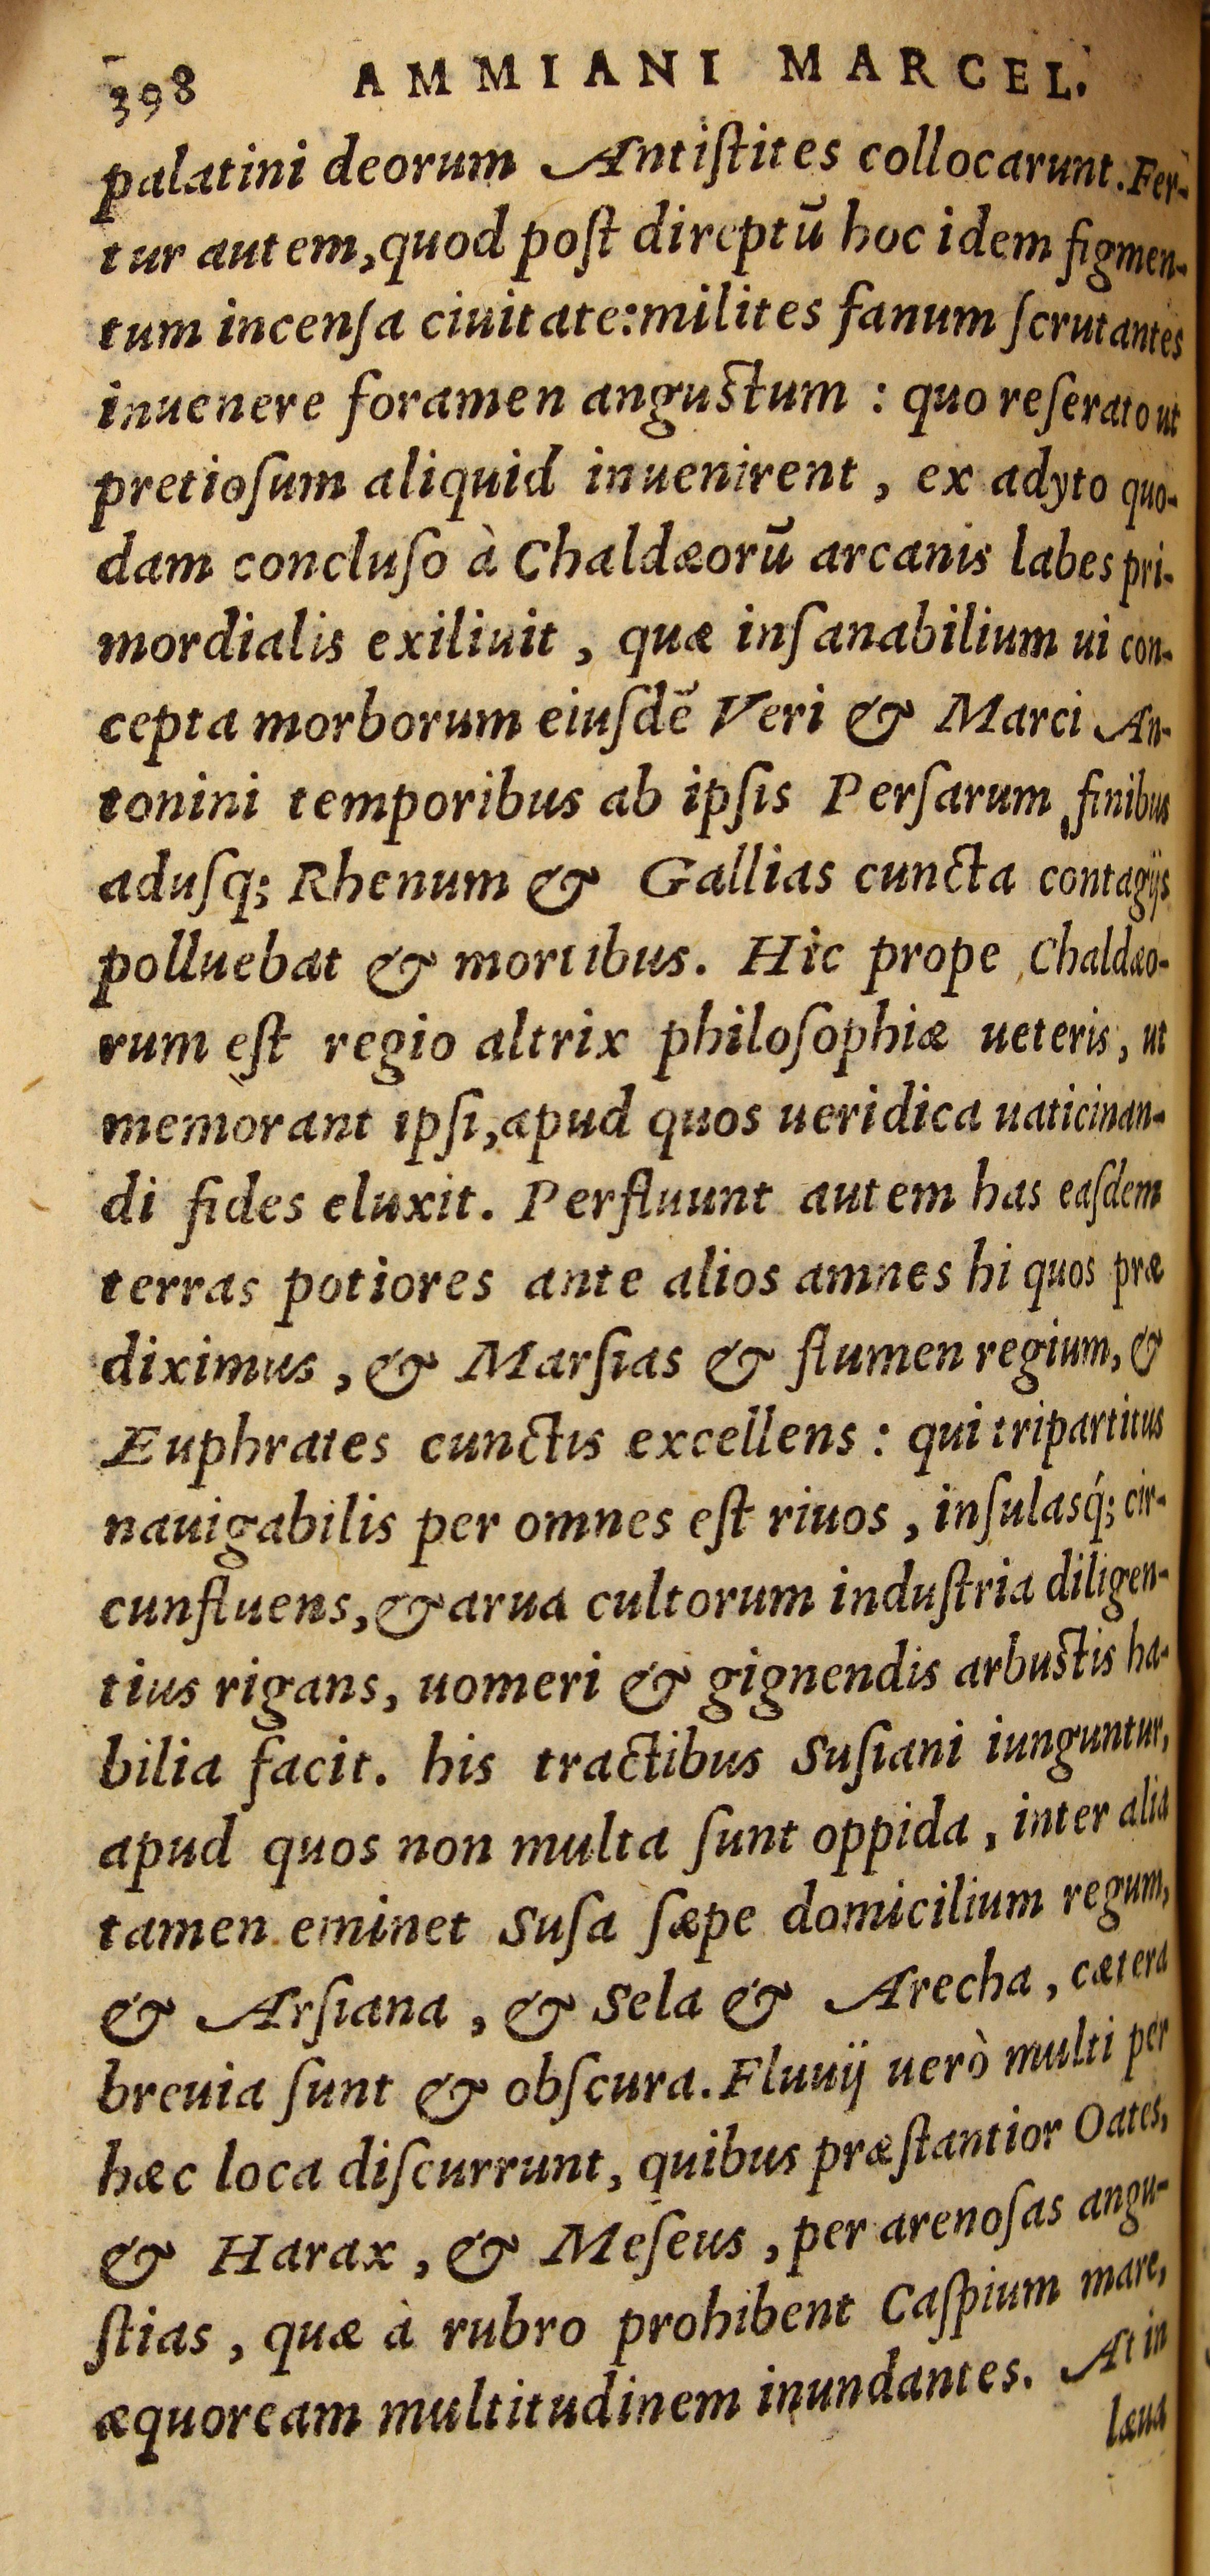 398 AMMIANI MARCEL.
palatini deorum Antiſtites collocarunt. Fer-
tur autem, quod poſt direptū hoc idem figmen-
tum incenſa ciuitate: milites fanum ſcrutantes
inuenere foramen anguſtum : quo reſerato ut
pretioſum aliquid inuenirent, ex adyto quo-
dam concluſo à Chaldæorū arcanis labes pri-
mordialis exiliuit, quæ inſanabilium ui con-
cepta morborum eiuſdē Veri & Marci An-
tonini temporibus ab ipſis Perſarum finibus
aduſq; Rhenum & Gallias cuncta contagijs
polluebat & mortibus. Hic prope Chaldæo-
rum eſt regio altrix philoſophiæ ueteris, ut
memorant ipſi, apud quos ueridica uaticinan-
di fides eluxit. Perfluunt autem has eaſdem
terras potiores ante alios amnes hi quos præ
diximus, & Marſias & flumen regium, &
Euphrates cunctis excellens : qui tripartitus
nauigabilis per omnes eſt riuos, inſulasq́; cir-
cunfluens, & arua cultorum induſtria diligen-
tius rigans, uomeri & gignendis arbuſtis ha-
bilia facit. his tractibus Suſiani iunguntur,
apud quos non multa ſunt oppida, inter alia
tamen eminet Suſa ſæpe domicilium regum,
& Arſiana, & Sela & Arecha, cætera
breuia ſunt & obſcura. Fluuij uerò multi per
hæc loca diſcurrunt, quibus præſtantior Oates,
& Harax, & Meſeus, per arenoſas angu-
ſtias, quæ à rubro prohibent Caſpium mare,
æquoream multitudinem inundantes. At in
læua